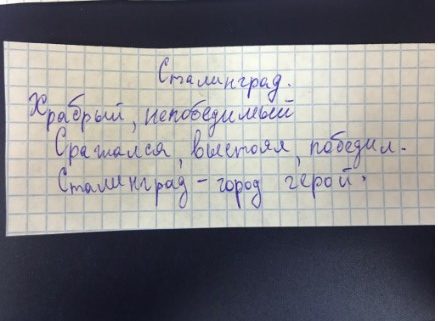 Сталинград.
Храбрый, непобедимый
Сражался, выстоял, победил.
Сталинград - город герой.